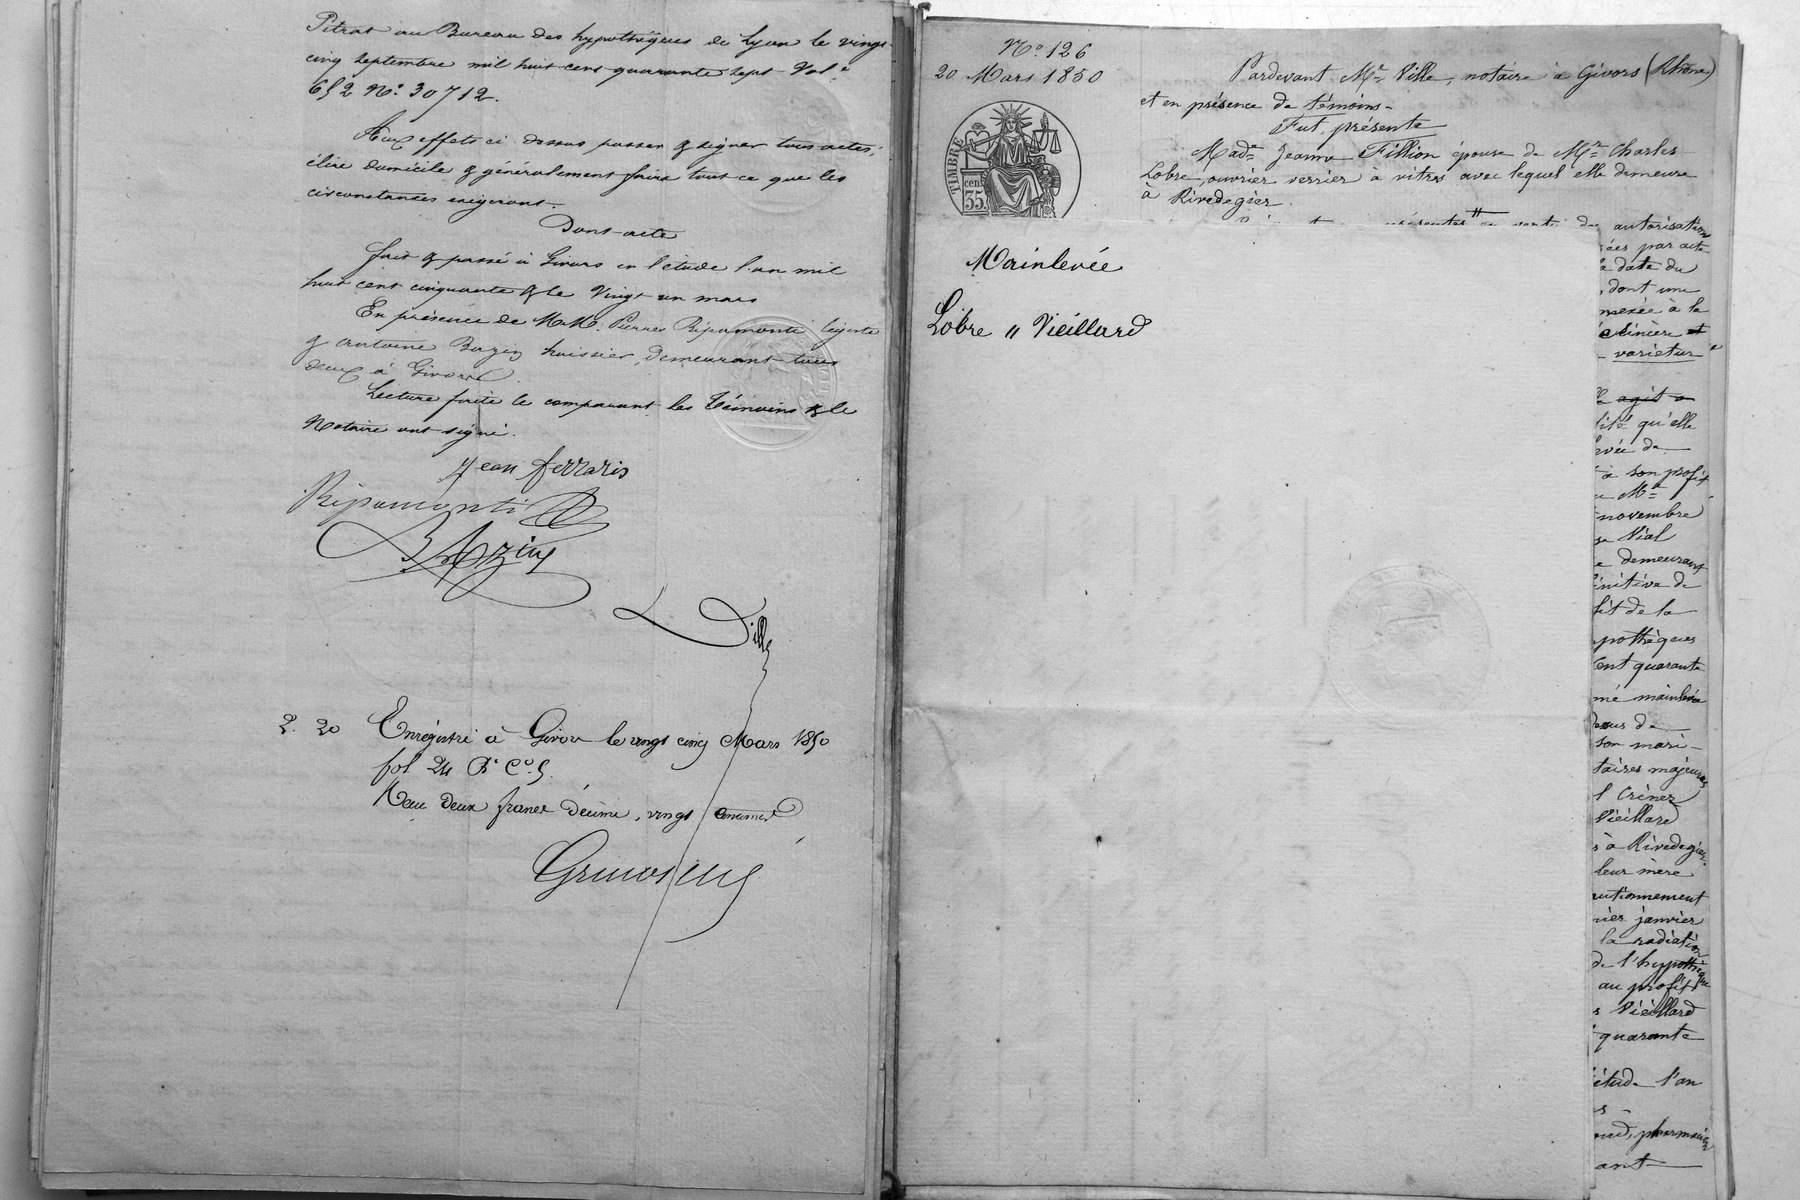 Pitrat au Bureau des hypothèques de Lyon le vingt
cinq septembre mil huit cent quarante sept Vol.e
652 N.o 30712.
Aux effets ci dessus passer & signer tous actes,
élire domicile & généralement faire tout ce que les
circonstances exigeront.
Dont acte
fait & passé à Givors en l'étude l'an mil
huit cent cinquante & le vingt un mars
En présence de M.M. Pierre Ripamonti
& Antoine Bazin huissier, demeurant tous
deux à Givors.
Lecture faite le comparant les témoins & le
Notaire ont signé.
Jean ferraris
Ripamonti
BAzin
Ville
2. 20 Enregistré à Givors le vingt cinq Mars 1850
fol 24 Ro Co. 5.
Reçu deux francs décime, vingt centimes
No. 126
20 Mars 1850
TIMBRE
cen.
35.
Pardevant Me Ville, notaire à Givors (Rhône)
et en présence de témoins-
Fut présente
Made Jeanne Fillion épouse de Mr Charles
Lobre, ouvrier verrier à vitres avec lequel elle demeure
à Rivedegier.
Mainlevée
Lobre " Vieillard
autorisation
par acte
date du
, dont une
à la
varietur
agit
qu'elle
de
à son profit
Me
novembre
Vial
demeurant
de
de la
quarante
mainlevée
de
son mari-
majeures
Vieillard
à Rivedegier.
leur mère
janvier
la radiation
de l'hypothèque
au profit
Vieillard
quarante
l'an
pharmacien